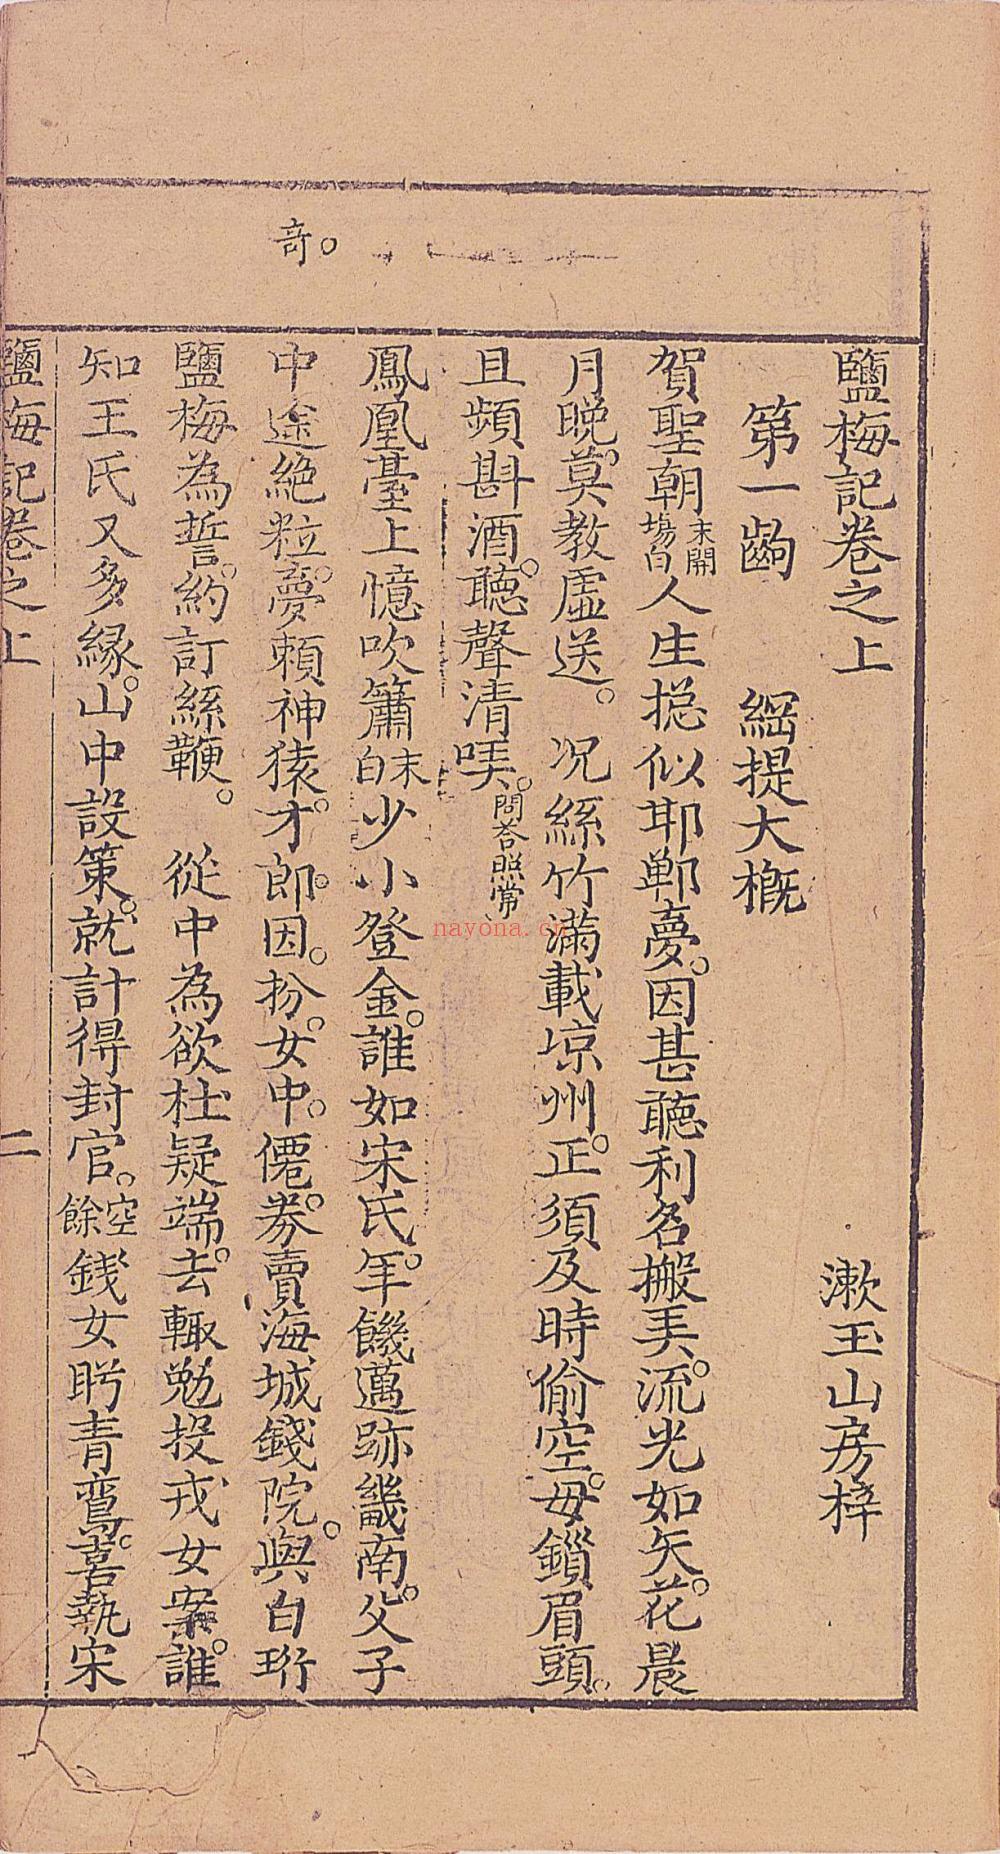 奇。
鹽梅記卷之上
漱玉山房梓
第一齣　綱提大概
賀聖朝末開場白人生捴似耶鄲夢。因甚聽利名搬弄。流光如矢。花晨
月晚。莫教虛送。　况絲竹滿載凉州。正須及時偷空。毋鎖眉頭。
且頻斟酒。聽聲清哢。問荅照常、
鳳凰臺上憶吹簫末白少小登金。誰如宋氏。年饑邁跡畿南。父子
中途絶粒。夢賴神猿。才郎因。扮女中。僊。劵賣海城錢院。與白珩
鹽梅為誓。約訂絲鞭。　從中為欲杜疑端。去輙勉投戎女案。誰
知王氏又多緣。山中設策。就計得封官。空餘錢女盻青鸞。喜執宋
鹽梅記卷之上
二
nayona.cn